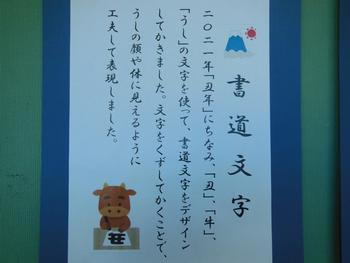 書道文字
二〇二一年「丑年」にちなみ、「丑」、「牛」、
「うし」の文字を使って、書道文字をデザイン
してかきました。文字をくずしてかくことで、
うしの顔や体に見えるように
工夫して表現しました。